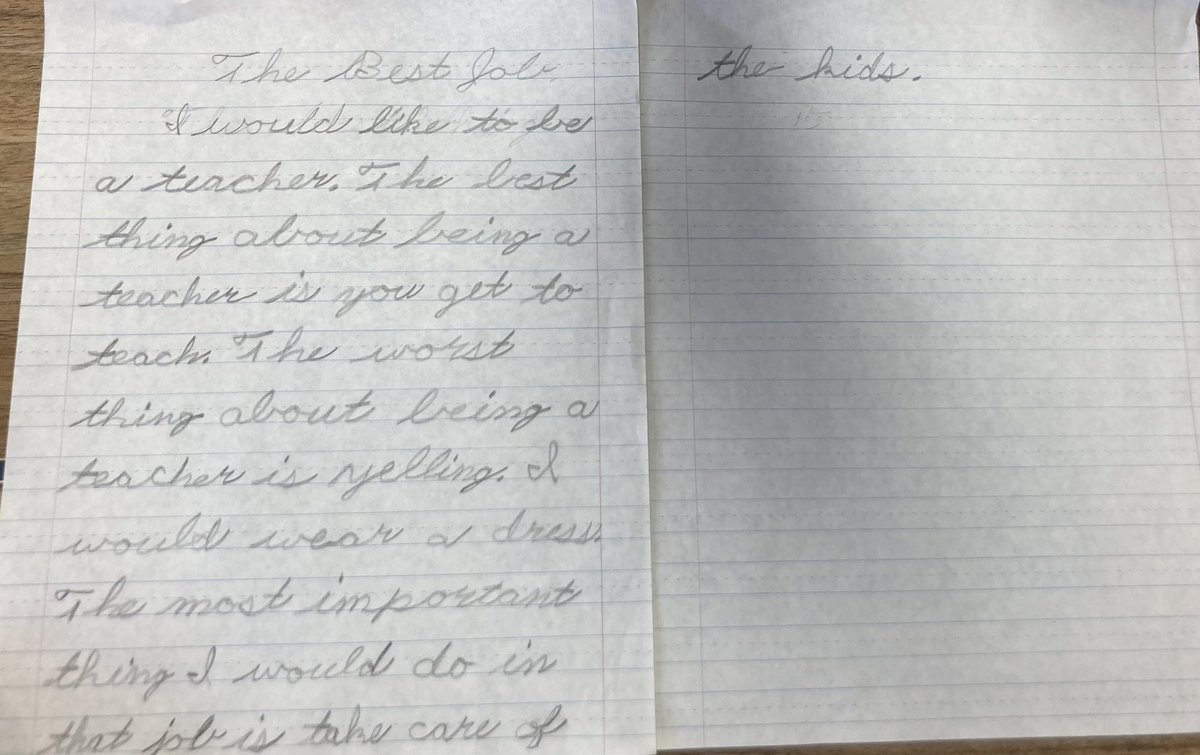 The Best Job
I would like to be
a teacher. The best
thing about being a
teacher is you get to
teach. The worst
thing about being a
teacher is yelling. I
would wear a dress.
The most important
thing I would do in
that job is take care of
the kids.